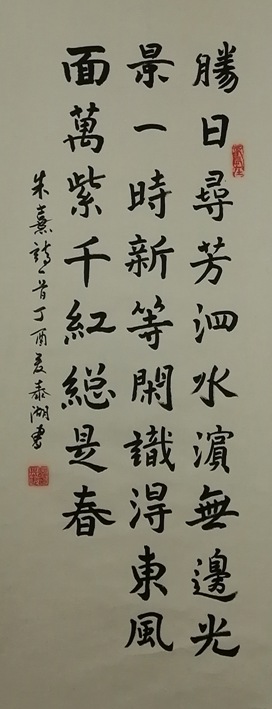 勝日尋芳泗水濵無邊光
景一時新等閑識得東風
面萬紫千紅総是春
朱熹詩一首丁酉夏泰湖書